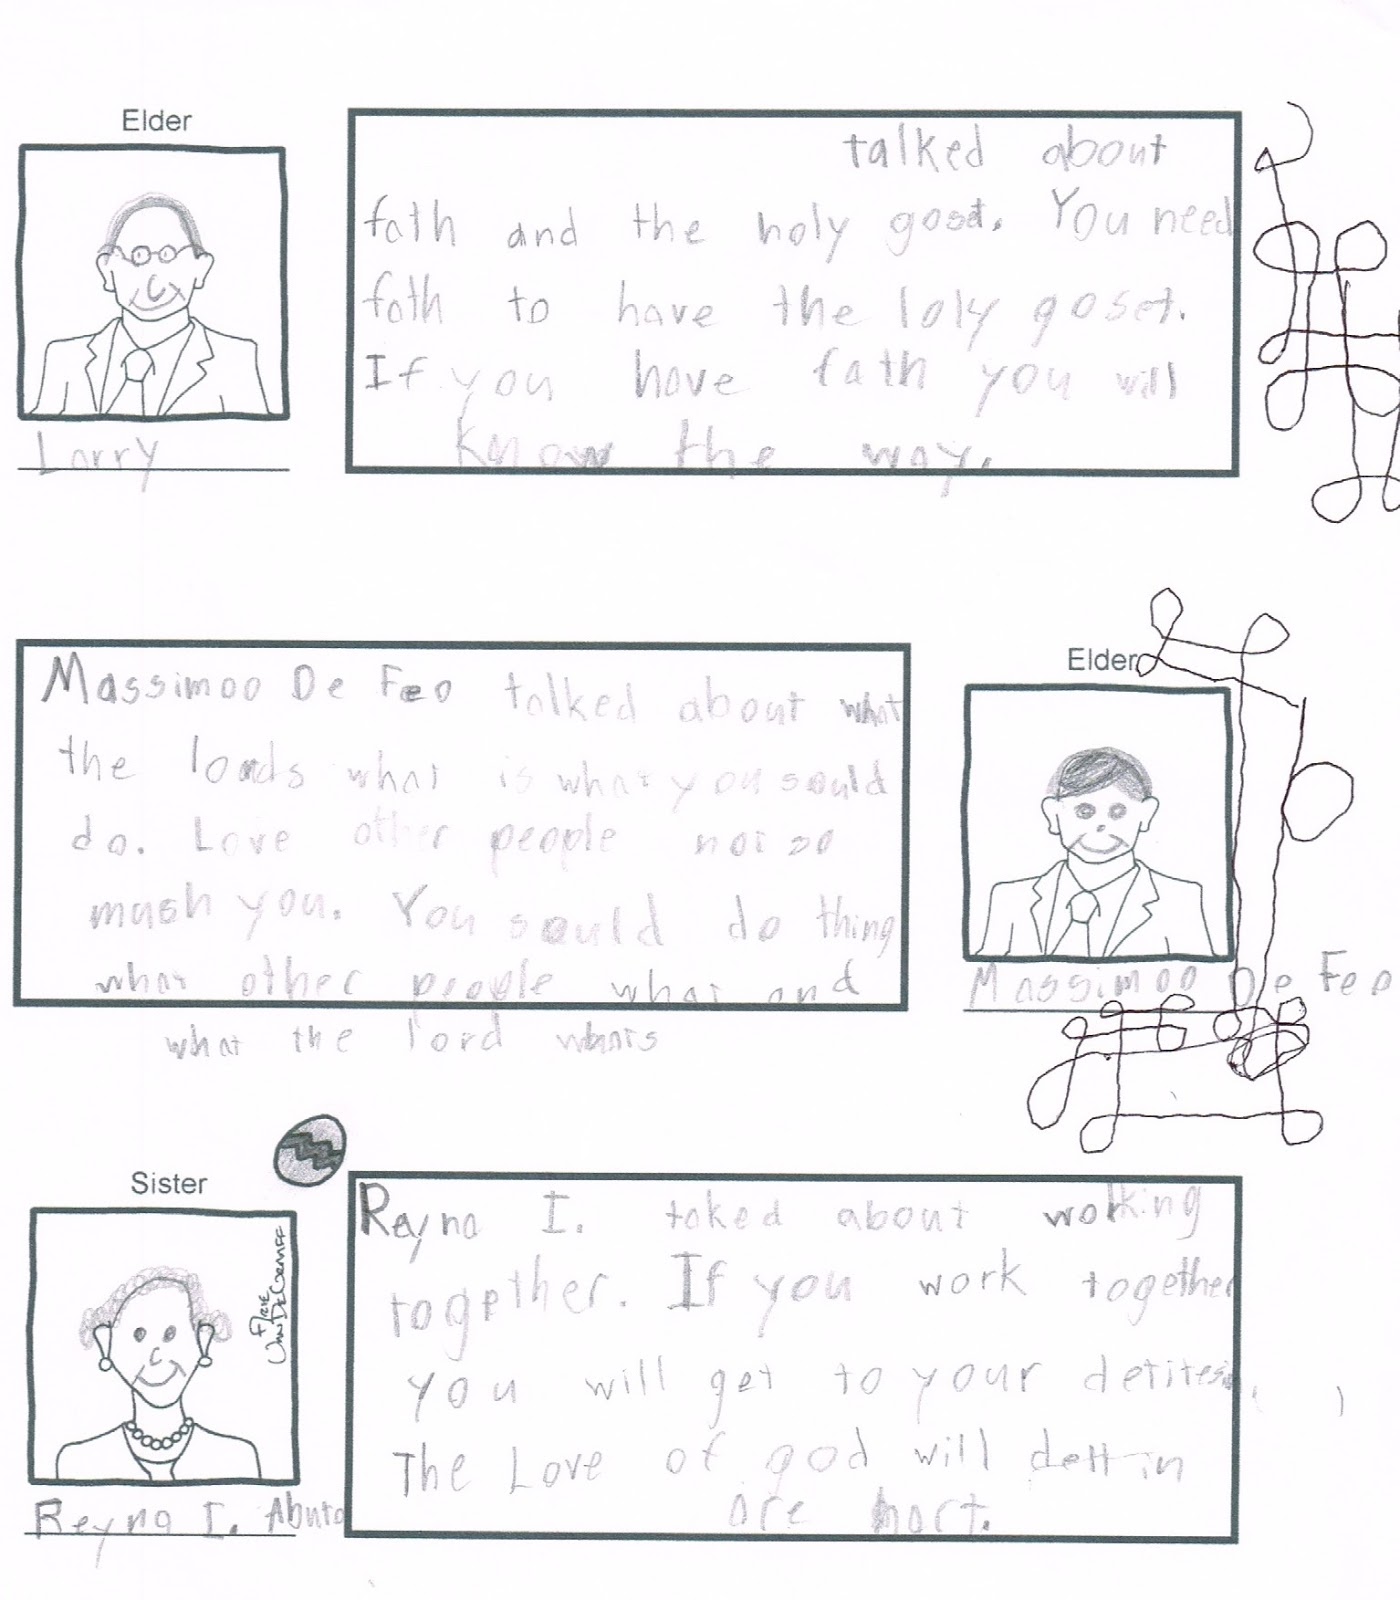 Elder
talked about
fath and the holy gost. You need
fath to have the loly goset.
If you have fath you will
know the way.
Larry
Massimoo De Feo talked about what
the loads what is what you sould
do. Love other people not so
mush you. You sould do thing
what other people what and
what the lord whats
Elder
Massimoo De Feo
Sister
Reyna I. Abuto
Reyna I. taked about working
together. If you work together
you will get to your
The Love of god will in
are hart.